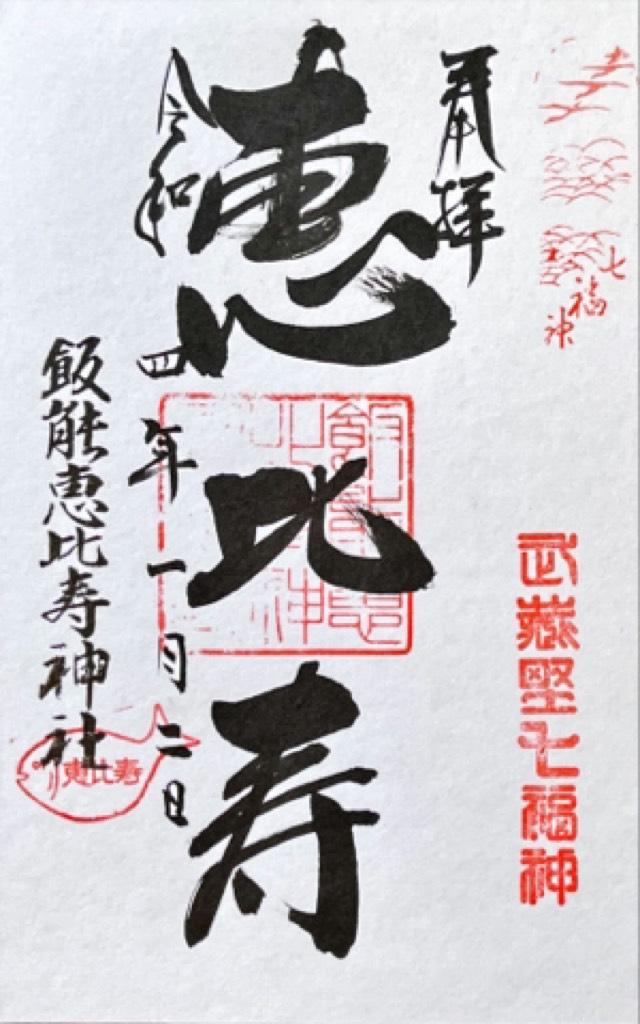 七福神
武蔵野七福神
奉拝
恵比寿
令和四年一月二日
飯能恵比寿神社
恵比寿